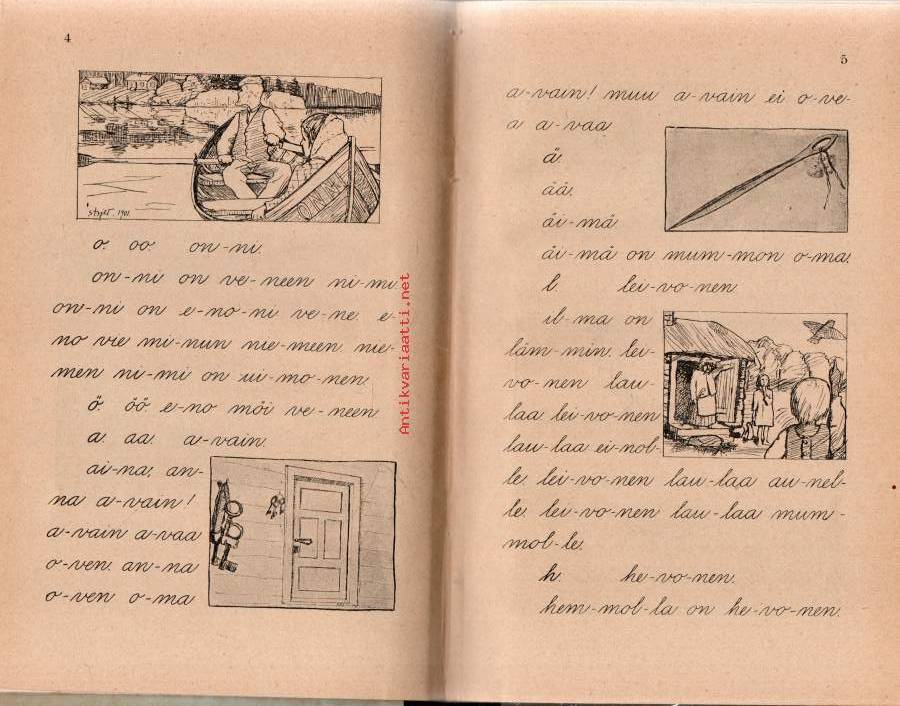 4
ONNI
o. oo. on-ni.
on-ni on ve-neen ni-mi.
on-ni on e-no-ni ve-ne. e-
no vie mi-nun nie-meen. nie-
men ni-mi on ui-mo-nen.
ö. öö. e-no möi ve-neen.
a. aa. a-vain.
ai-na, an-
na a-vain!
a-vain a-vaa
o-ven. an-na
o-ven o-ma
Antikvariaatti.net
5
a-vain! muu a-vain ei o-ve-
a a-vaa.
ä.
ää.
äi-mä.
äi-mä on mum-mon o-ma.
l. lei-vo-nen.
il-ma on
läm-min. lei-
vo-nen lau-
laa. lei-vo-nen
lau-laa ei-nol-
le. lei-vo-nen lau-laa au-nel-
le. lei-vo-nen lau-laa mum-
mol-le.
h. he-vo-nen.
hem-mol-la on he-vo-nen.